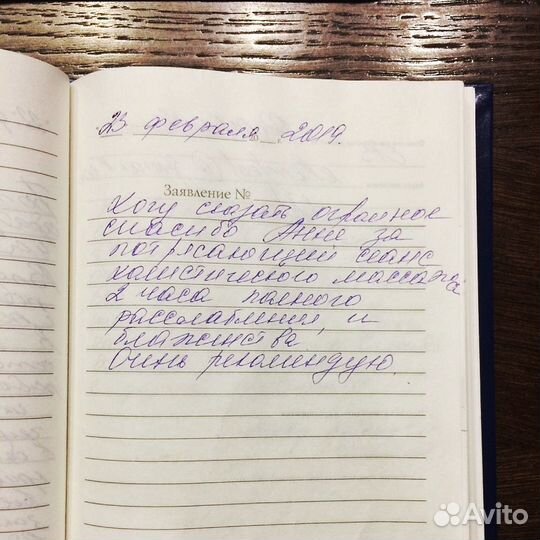 23 февраля 2019.
Заявление №
Хочу сказать огромное
спасибо Анне за
потрясающий сеанс
холистического массажа
2 часа полного
расслабления и
блаженства
Очень рекомендую.
Avito